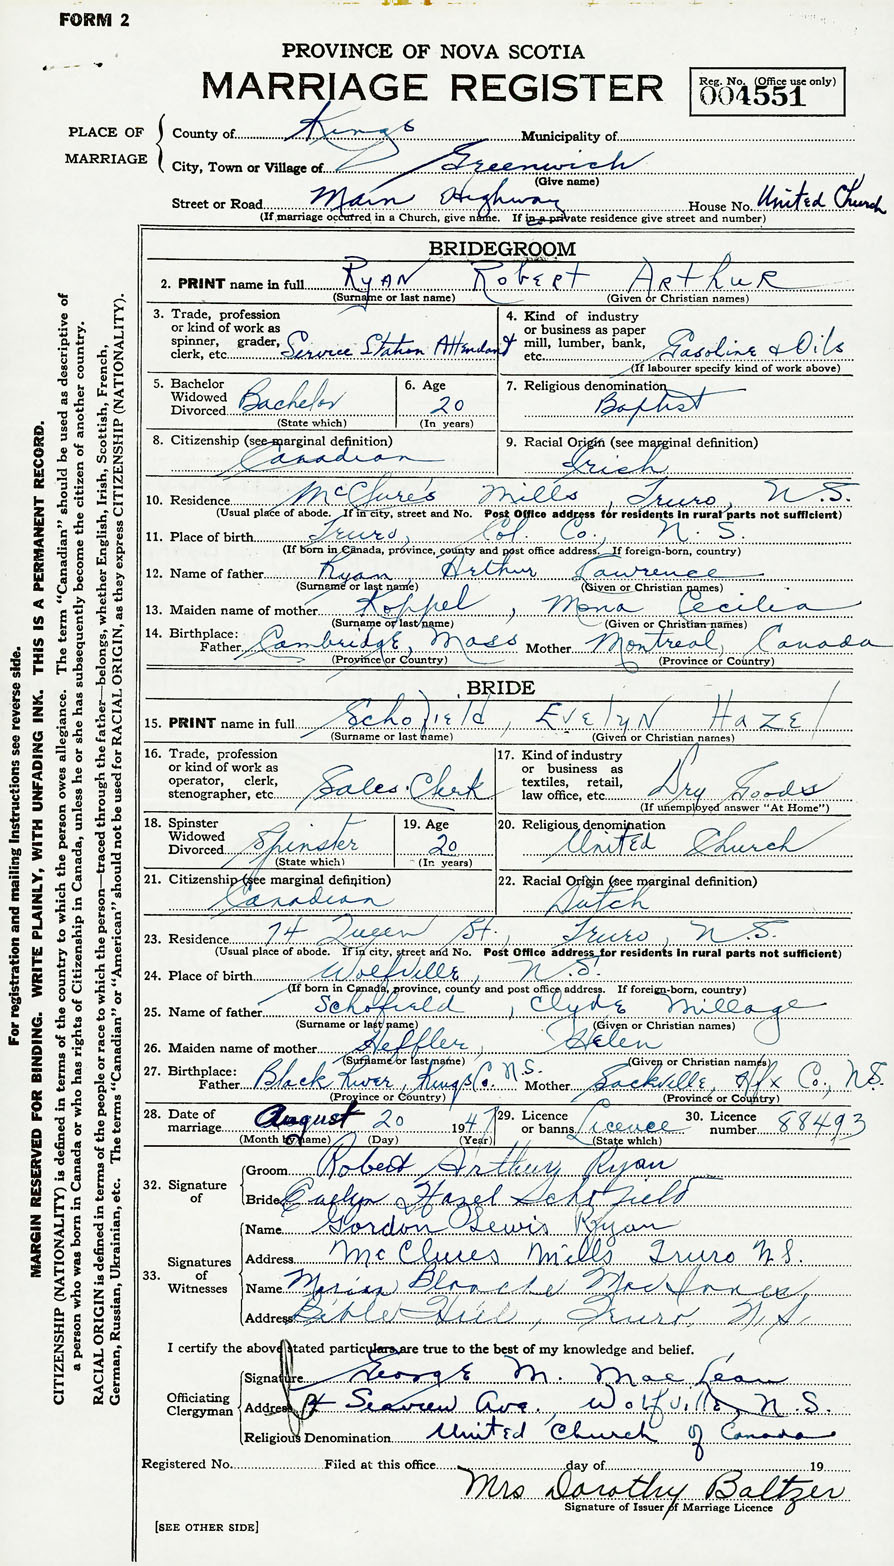 FORM 2
PROVINCE OF NOVA SCOTIA
MARRIAGE REGISTER
Reg. No. (Office use only)
004551
PLACE OF MARRIAGE
County of Kings Municipality of
City, Town or Village of Greenwich
(Give name)
Street or Road Main Highway House No. United Church
(If marriage occurred in a Church, give name. If in a private residence give street and number)
BRIDEGROOM
2. PRINT name in full RYAN ROBERT ARTHUR
(Surname or last name) (Given or Christian names)
3. Trade, profession or kind of work as spinner, grader, clerk, etc. Service Station Attendant
4. Kind of industry or business as paper mill, lumber, bank, etc. Gasoline & Oils
(If labourer specify kind of work above)
5. Bachelor Widowed Divorced Bachelor
(State which)
6. Age 20
(In years)
7. Religious denomination Baptist
8. Citizenship (see marginal definition) Canadian
9. Racial Origin (see marginal definition) Irish
10. Residence McClure's Mills, Truro, N.S.
(Usual place of abode. If in city, street and No. Post Office address for residents in rural parts not sufficient)
11. Place of birth Truro, Col. Co., N.S.
(If born in Canada, province, county and post office address. If foreign-born, country)
12. Name of father Ryan Arthur Lawrence
(Surname or last name) (Given or Christian names)
13. Maiden name of mother Koppel, Mona Cecilia
(Surname or last name) (Given or Christian names)
14. Birthplace: Father Cambridge, Mass Mother Montreal, Canada
(Province or Country) (Province or Country)
BRIDE
15. PRINT name in full Schofield, EVELYN HAZEL
(Surname or last name) (Given or Christian names)
16. Trade, profession or kind of work as operator, clerk, stenographer, etc. Sales Clerk
17. Kind of industry or business as textiles, retail, law office, etc. Dry Goods
(If unemployed answer "At Home")
18. Spinster Widowed Divorced Spinster
(State which)
19. Age 20
(In years)
20. Religious denomination United Church
21. Citizenship (see marginal definition) Canadian
22. Racial Origin (see marginal definition) Dutch
23. Residence 74 Queen St., Truro, N.S.
(Usual place of abode. If in city, street and No. Post Office address for residents in rural parts not sufficient)
24. Place of birth Wolfville, N.S.
(If born in Canada, province, county and post office address. If foreign-born, country)
25. Name of father Schofield, Clyde Millage
(Surname or last name) (Given or Christian names)
26. Maiden name of mother Heffler, Helen
(Surname or last name) (Given or Christian names)
27. Birthplace: Father Black River, Kings Co. N.S. Mother Sackville, Hfx Co., N.S.
(Province or Country) (Province or Country)
28. Date of marriage August 20 1947
(Month by name) (Day) (Year)
29. Licence or banns Licence
(State which)
30. Licence number 88493
32. Signature of
Groom Robert Arthur Ryan
Bride Evelyn Hazel Schofield
33. Signatures of Witnesses
Name Gordon Lewis Ryan
Address McClures Mills Truro N.S.
Name Marian Blanche MacInnes
Address Bible Hill, Truro, N.S.
I certify the above stated particulars are true to the best of my knowledge and belief.
Officiating Clergyman
Signature George M. MacLean
Address 4 Seaview Ave., Wolfville, N.S.
Religious Denomination United Church of Canada
Registered No. Filed at this office day of 19
Mrs Dorothy Baltzer
Signature of Issuer of Marriage Licence
[SEE OTHER SIDE]
For registration and mailing instructions see reverse side.
MARGIN RESERVED FOR BINDING. WRITE PLAINLY, WITH UNFADING INK. THIS IS A PERMANENT RECORD.
CITIZENSHIP (NATIONALITY) is defined in terms of the country to which the person owes allegiance. The term "Canadian" should be used as descriptive of
a person who was born in Canada or who has rights of Citizenship in Canada, unless he or she has subsequently become the citizen of another country.
RACIAL ORIGIN is defined in terms of the people or race to which the person—traced through the father—belongs, whether English, Irish, Scottish, French,
German, Russian, Ukrainian, etc. The terms "Canadian" or "American" should not be used for RACIAL ORIGIN, as they express CITIZENSHIP (NATIONALITY).